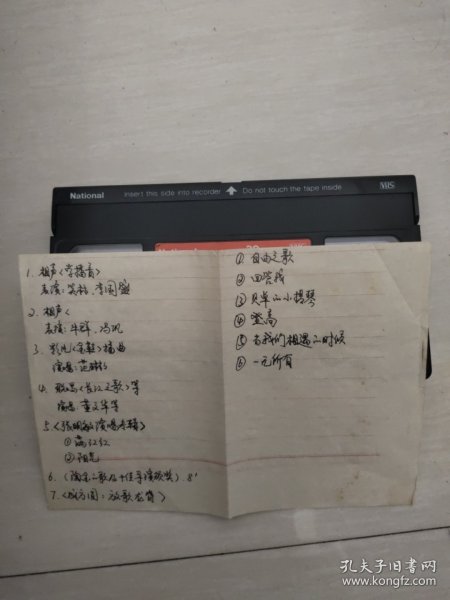 National
Insert this side into recorder
Do not touch the tape inside
VHS
1. 相声《学播音》
表演: 笑林, 李国盛
2. 相声《
表演: 牛群, 冯巩
3. 影片《金鞋》插曲
演唱: 范琳琳
4. 歌曲《长江之歌》等
演唱: 董文华等
5. 《张明敏演唱专辑》
① 满江红
② 阳光
6. 及十佳导演颁奖》8'
7. 《成方圆: 放歌
① 自由之歌
② 回答我
③ 贝单的小提琴
④ 登高
⑤ 当我们相遇的时候
⑥ 一无所有
孔夫子旧书网
www.kongfz.com